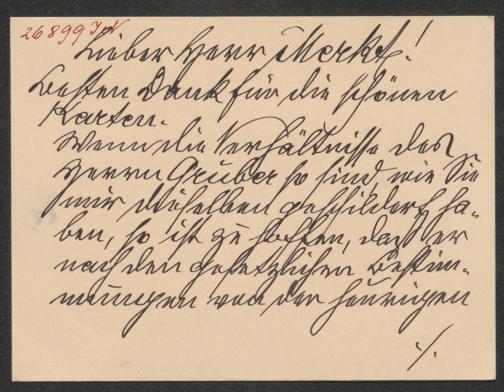 26899 JN
Lieber Herr Merkt!
Besten Dank für die schönen
Karten.
Wenn die Verhältnisse des
Herrn Gruber so sind, wie Sie
mir dieselben geschildert ha-
ben, so ist zu hoffen, daß er
nach den gesetzlichen Bestim-
mungen von der heurigen
./.